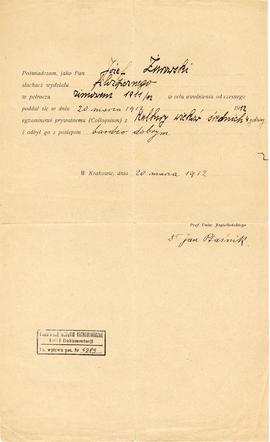 Poświadczam, jako Pan Józef Żurowski
słuchacz wydziału filozoficznego
w półroczu zimowem 1911/12 w celu uwolnienia od czesnego
poddał się w dniu 20 marca 1912
egzaminowi prywatnemu (Colloquium) z Kultury wieków średnich
i odbył go z postępem bardzo dobrym
W Krakowie, dnia 20 marca 1912
Prof. Uniw. Jagiellońskiego
Dr Jan Ptaśnik
Dokumentacji
Nr